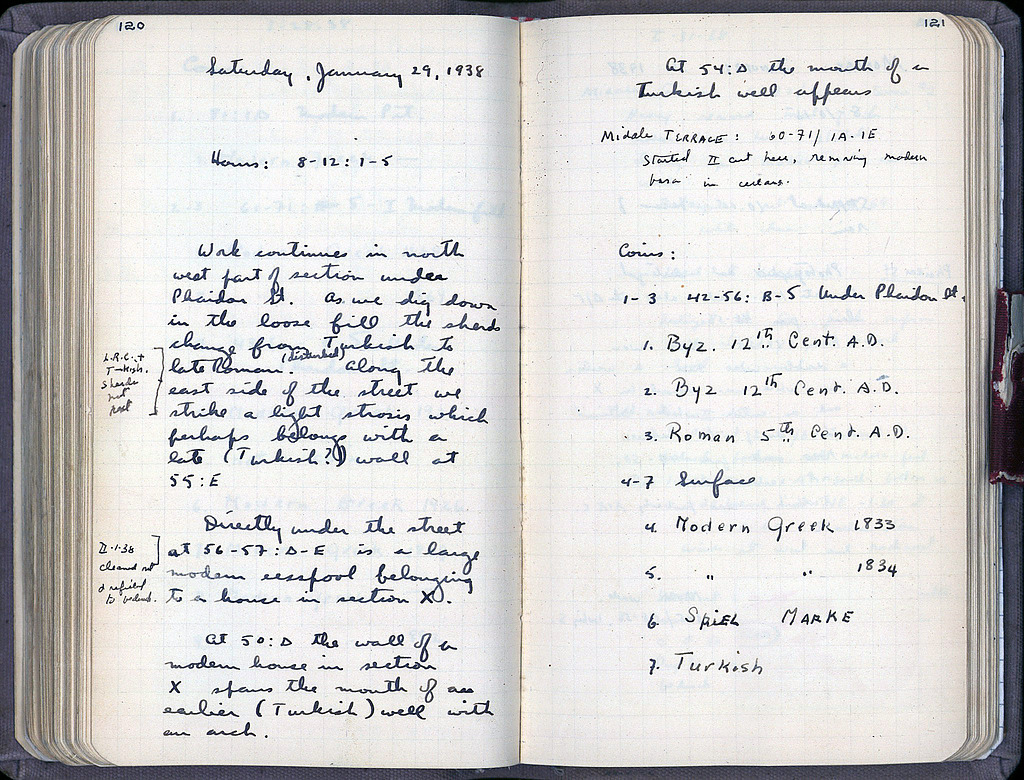 120
Saturday, January 29, 1938
Hours: 8-12: 1-5
Work continues in north
west part of section under
Phaidon St. As we dig down
in the loose fill the sherds
change from Turkish to
late Roman. (disturbed) Along the
east side of the street we
strike a light strosis which
perhaps belongs with a
late (Turkish?) wall at
55:E
L.R.C. +
T-kish.
sherds
not
kept
Directly under the street
at 56-57:D-E is a large
modern cesspool belonging
to a house in section X.
II-1-38
cleaned out
& refilled
At 50:D the wall of a
modern house in section
X spans the mouth of an
earlier (Turkish) well with
an arch.
121
At 54:D the mouth of a
Turkish well appears
Middle Terrace: 60-71/1A-1E
Started II cut here, removing modern
in
Coins:
1-3 42-56: B-5 Under Phaidon St.
1. Byz. 12th Cent. A.D.
2. Byz 12th Cent. A.D.
3. Roman 5th Cent. A.D.
4-7 Surface
4. Modern Greek 1833
5. " " 1834
6. Spiel Marke
7. Turkish